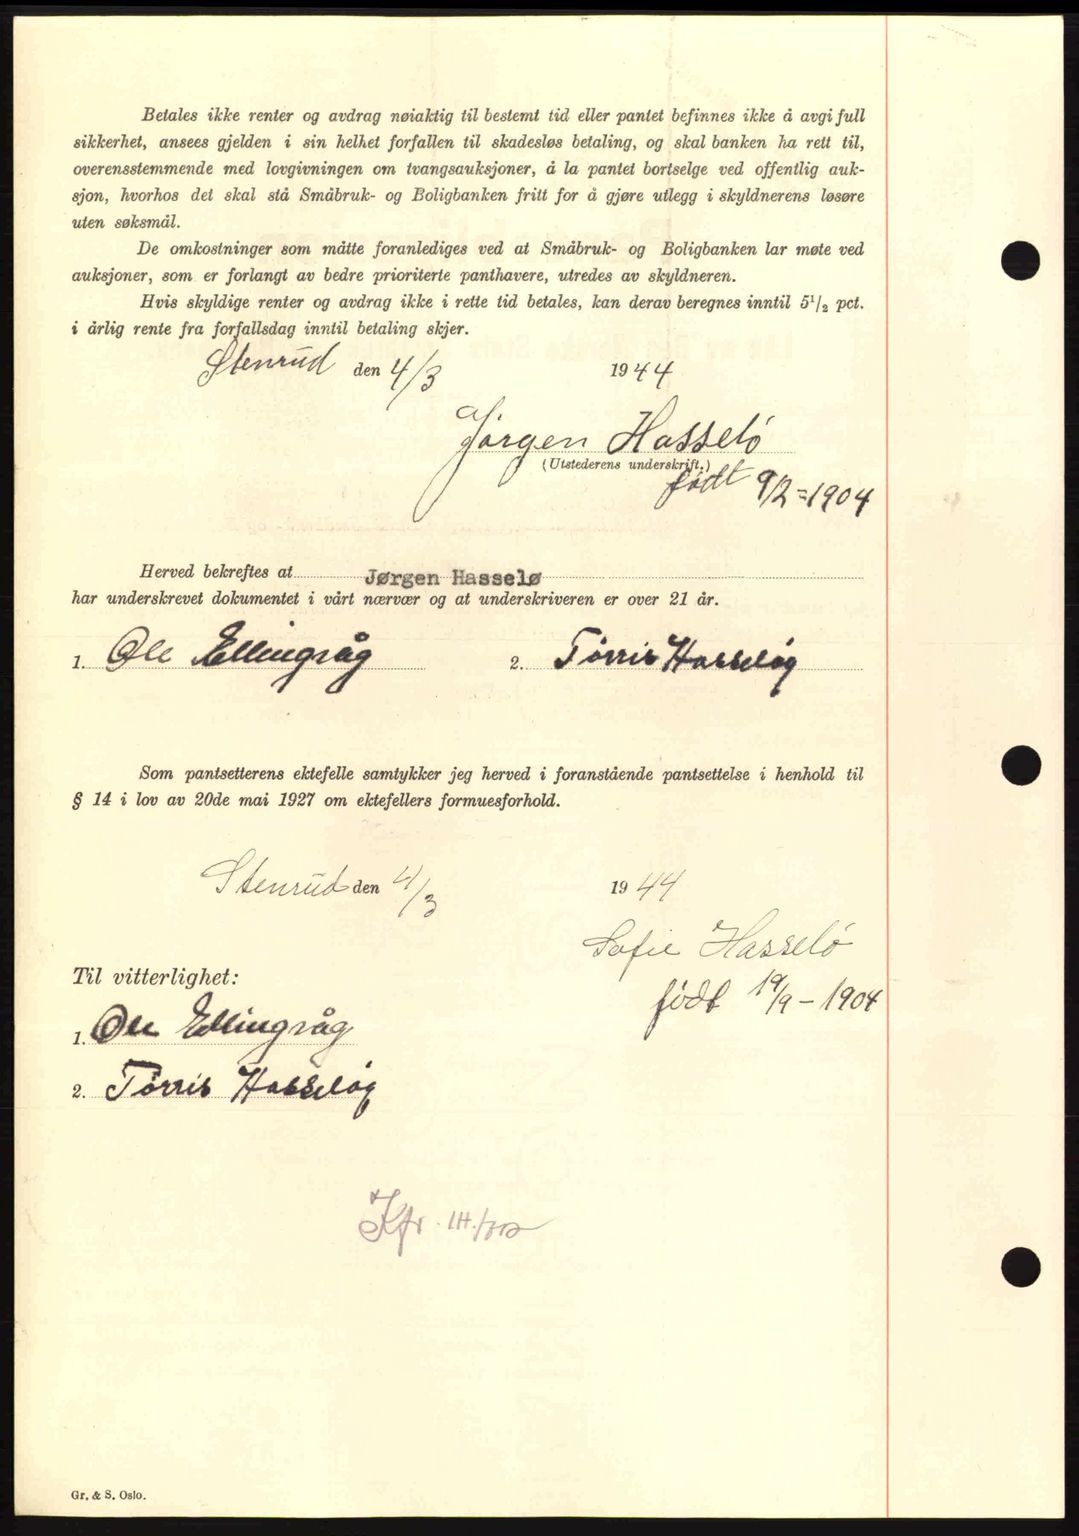 Betales ikke renter og avdrag nøiaktig til bestemt tid eller pantet befinnes ikke å avgi full
sikkerhet, ansees gjelden i sin helhet forfallen til skadesløs betaling, og skal banken ha rett til,
overensstemmende med lovgivningen om tvangsauksjoner, å la pantet bortselge ved offentlig auk-
sjon, hvorhos det skal stå Småbruk- og Boligbanken fritt for å gjøre utlegg i skyldnerens løsøre
uten søksmål.
De omkostninger som måtte foranlediges ved at Småbruk- og Boligbanken lar møte ved
auksjoner, som er forlangt av bedre prioriterte panthavere, utredes av skyldneren.
Hvis skyldige renter og avdrag ikke i rette tid betales, kan derav beregnes inntil 5¹/₂ pct.
i årlig rente fra forfallsdag inntil betaling skjer.
Stenrud den 4/3 1944
Jørgen Hasselö
(Utstederens underskrift.)
født 9/2=1904
Herved bekreftes at Jørgen Hasselø
har underskrevet dokumentet i vårt nærvær og at underskriveren er over 21 år.
1. Ole Ellingsåg 2. Tørris Hasseløg
Som pantsetterens ektefelle samtykker jeg herved i foranstående pantsettelse i henhold til
§ 14 i lov av 20de mai 1927 om ektefellers formuesforhold.
Stenrud den 4/3 1944
Sofie Hasselö
født 19/9-1904
Til vitterlighet:
1. Ole Ellingsåg
2. Tørris Hasseløg
Kfr.
Gr. & S. Oslo.